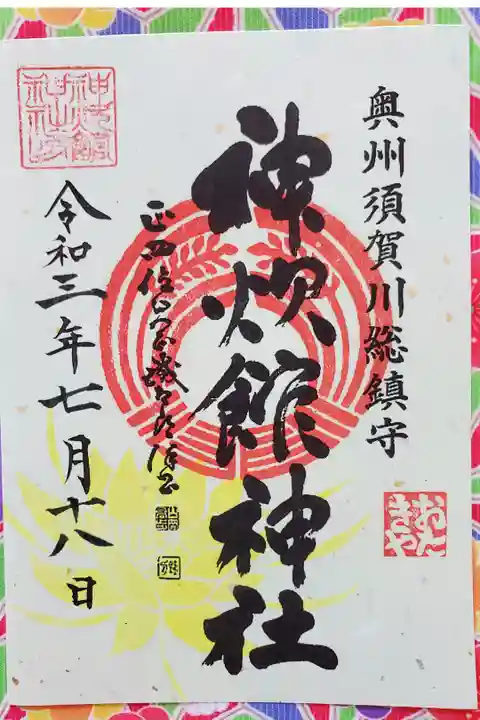 奥州須賀川総鎮守
神炊館神社
令和三年七月十八日